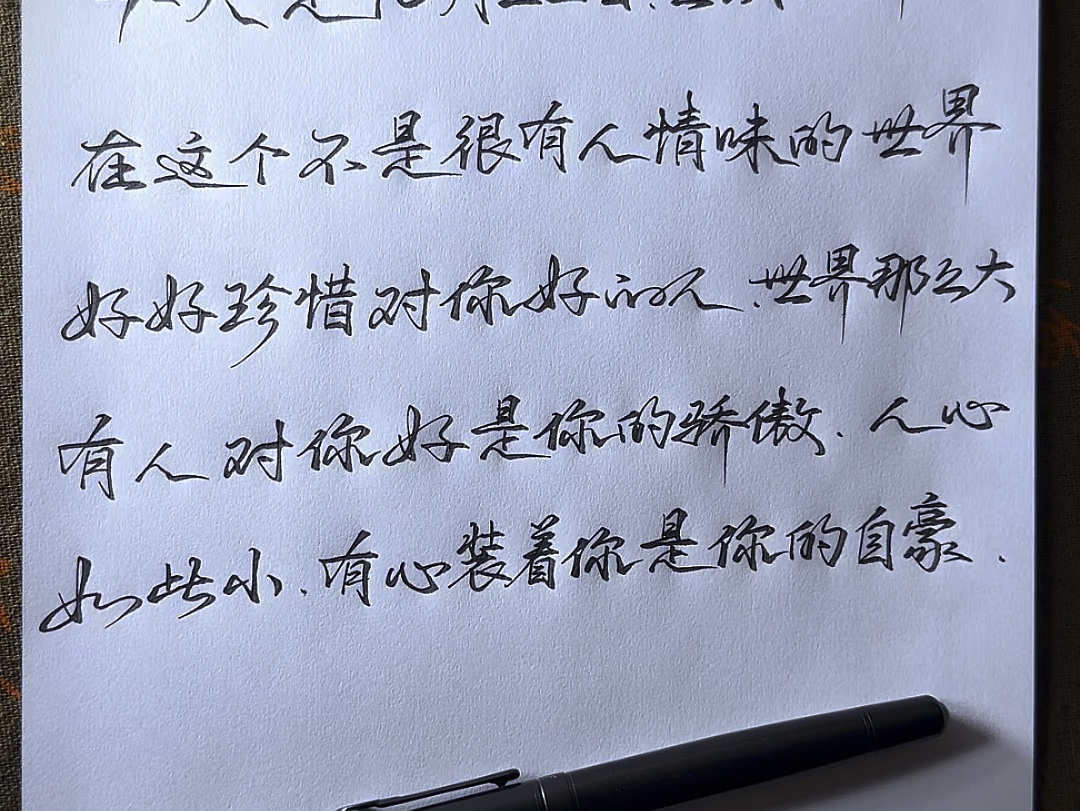 在这个不是很有人情味的世界
好好珍惜对你好的人.世界那么大
有人对你好是你的骄傲.人心
如此小.有心装着你是你的自豪.